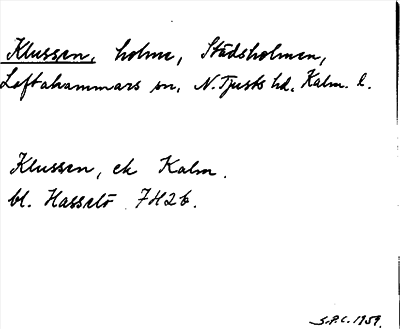 Klussen, holme, Städsholmen,
Loftahammars sn, N. Tjusts hd, Kalm. l.
Klussen, ek Kalm.
bl. Hasselö 7H2b.
S.P.C. 1959.